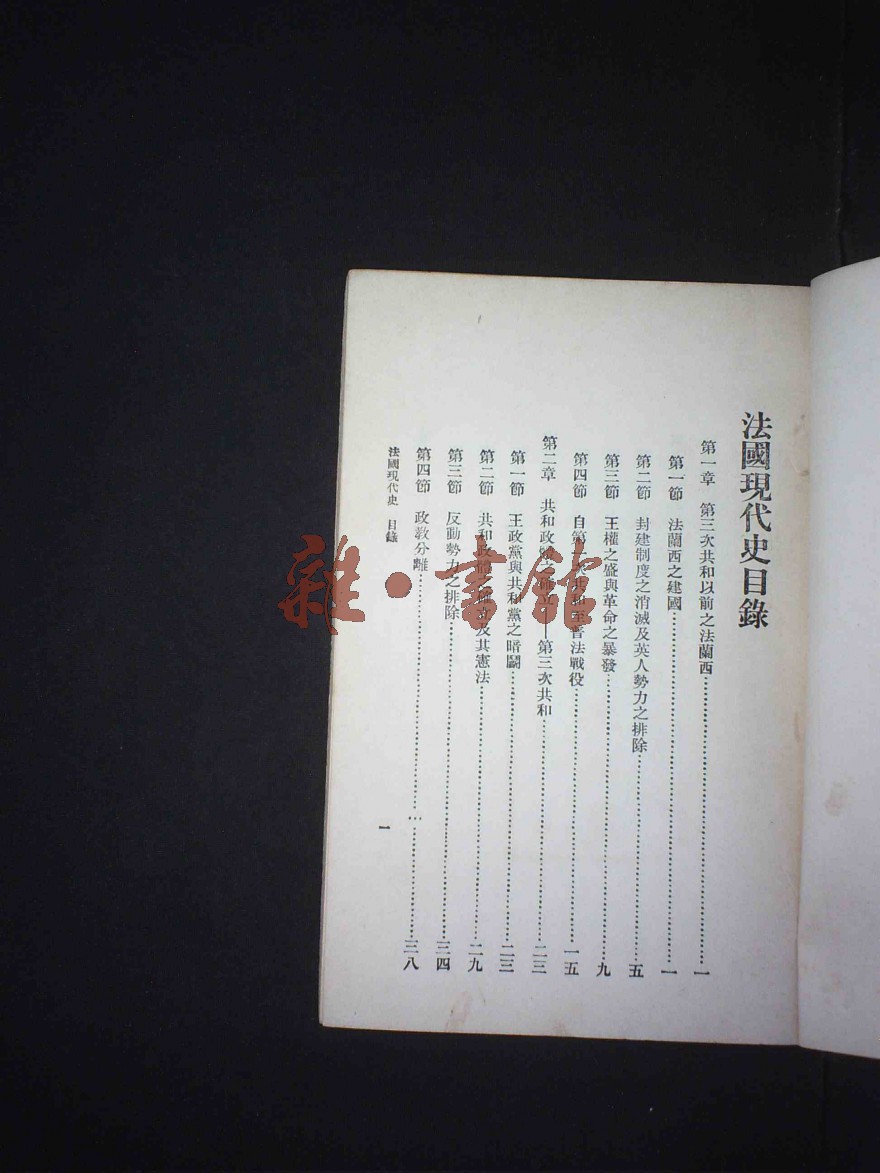 法國現代史目錄
第一章　第三次共和以前之法蘭西……一
第一節　法蘭西之建國……一
第二節　封建制度之消滅及英人勢力之排除……五
第三節　王權之盛與革命之暴發……九
第四節　自第一次共和至普法戰役……一五
第二章　共和政體之確立——第三次共和……二三
第一節　王政黨與共和黨之暗鬪……二三
第二節　共和政體之確立及其憲法……二九
第三節　反動勢力之排除……三四
第四節　政教分離……三八
法國現代史　目錄
一
雜·書館